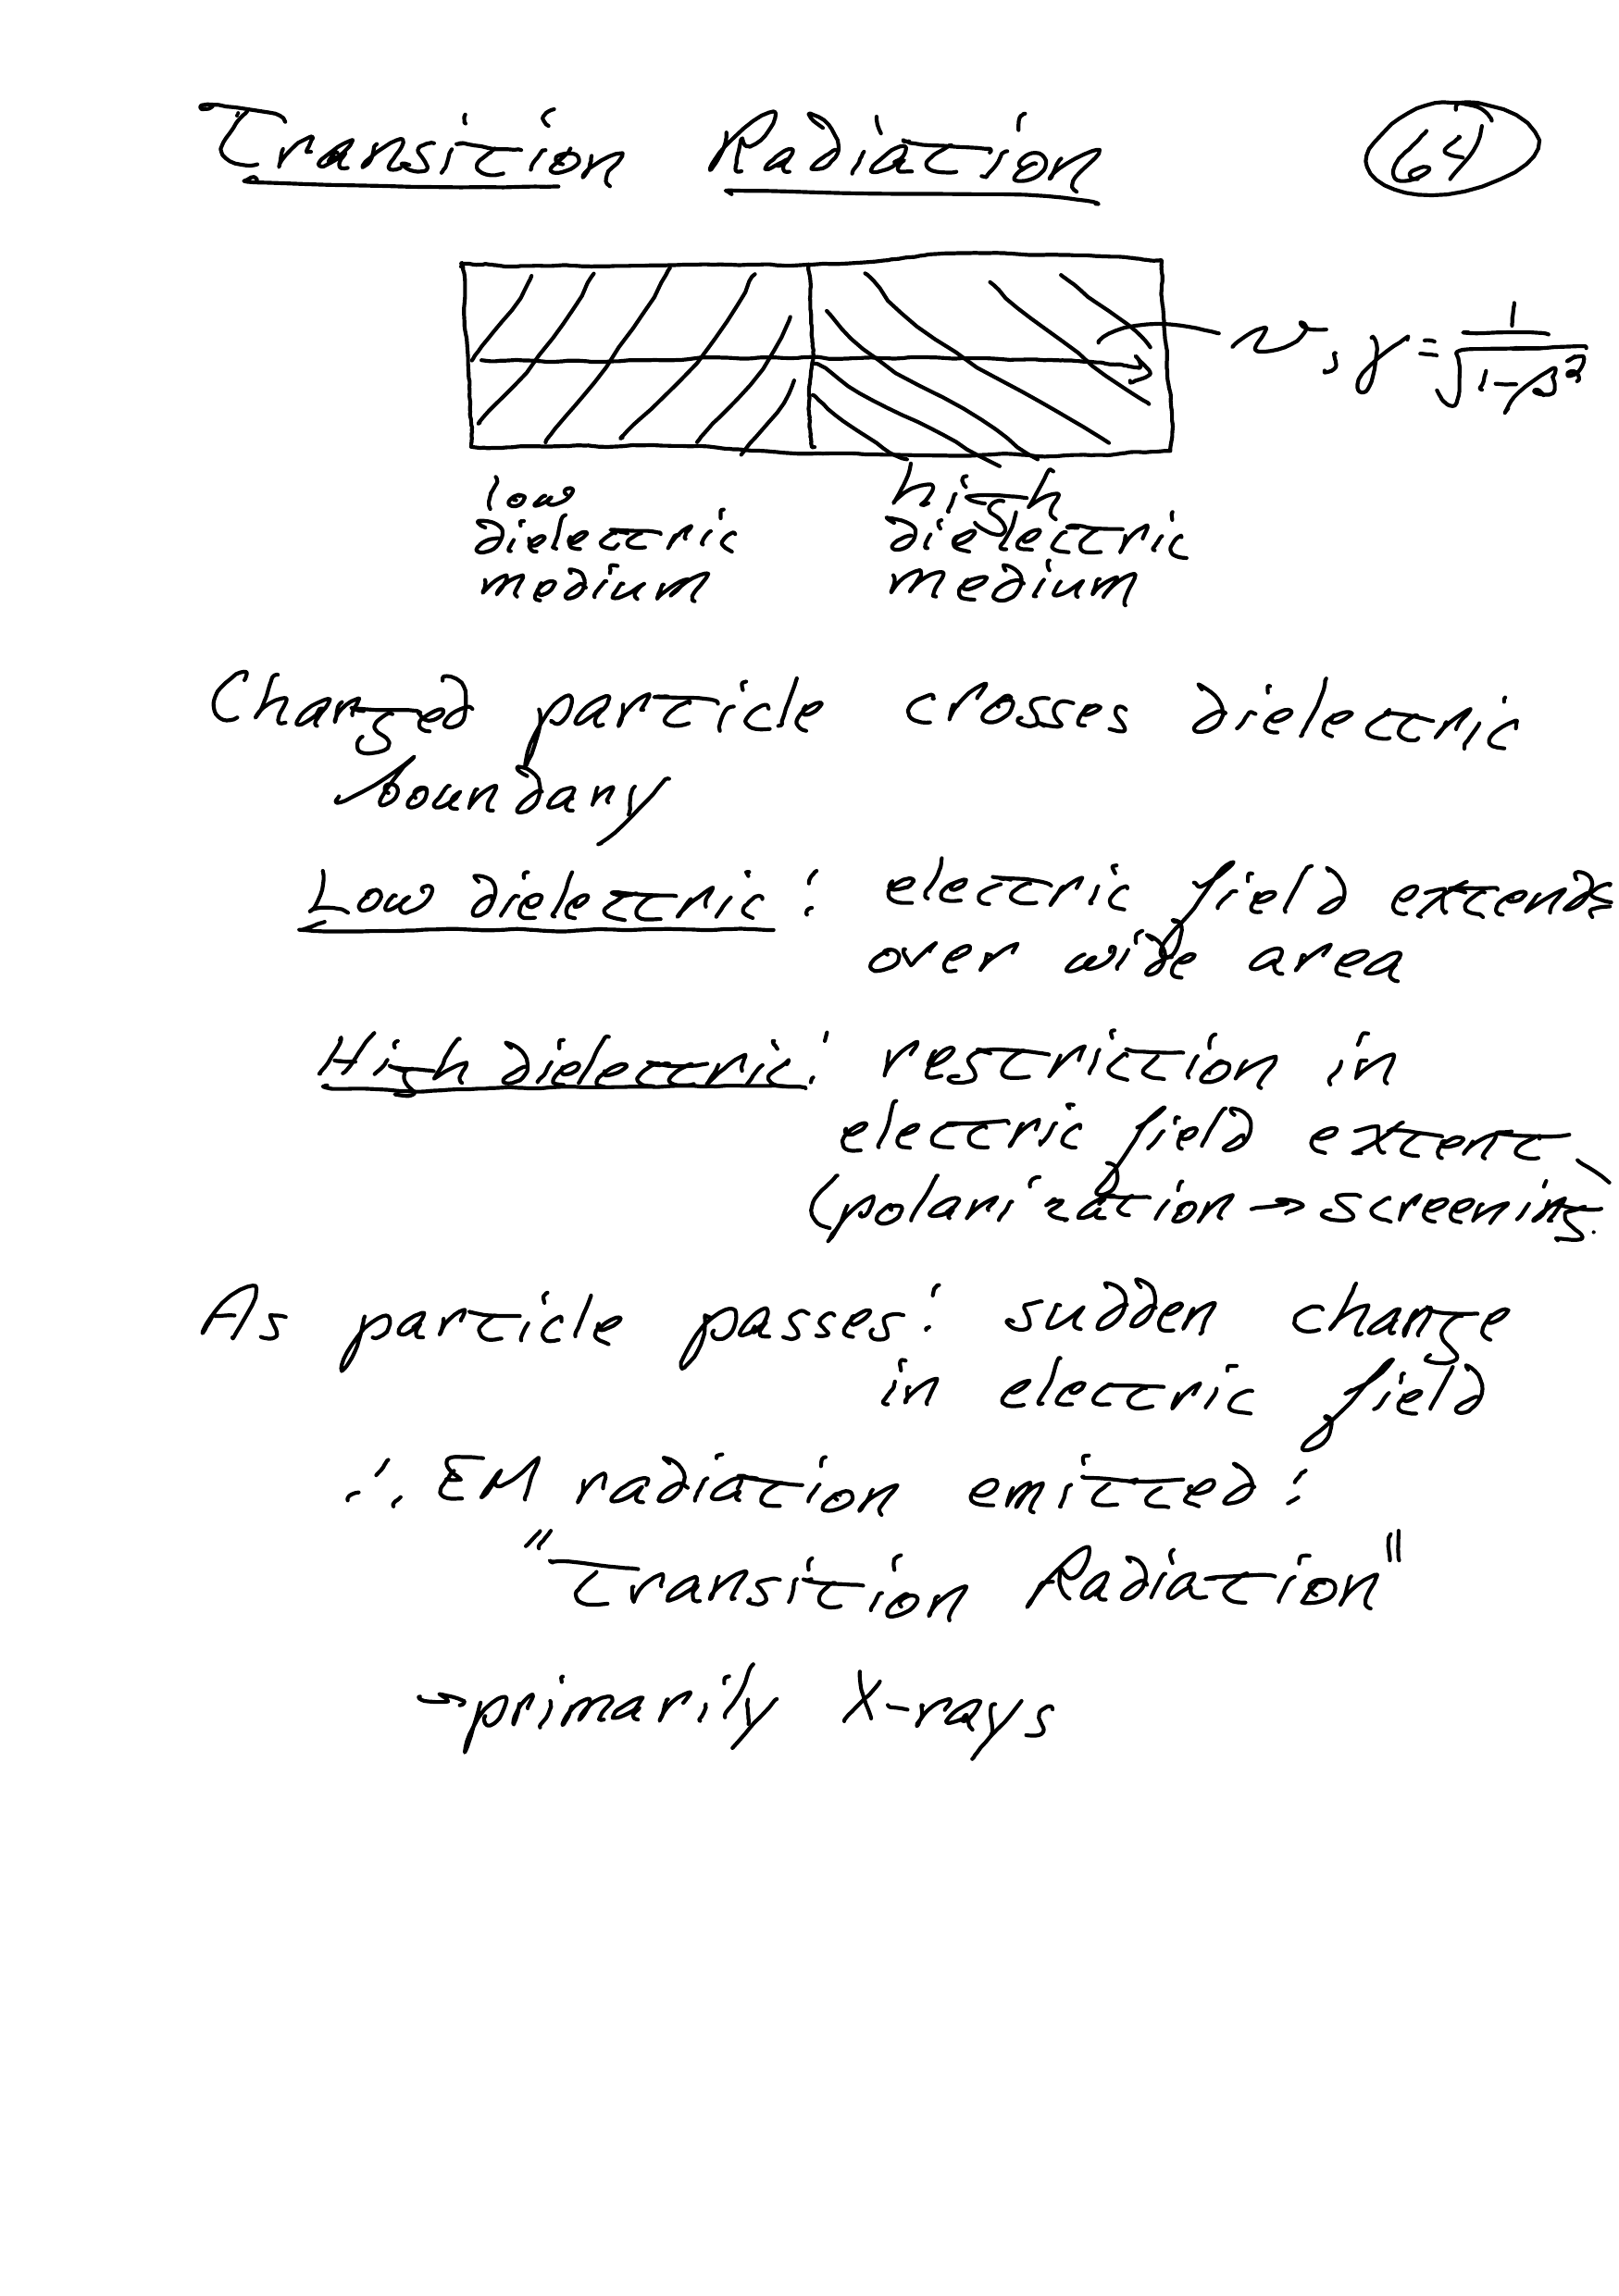 Transition Radiation 64
v, γ = 1/√(1-β²)
low dielectric medium
high dielectric medium
Charged particle crosses dielectric
boundary
Low dielectric: electric field extends
over wide area
High dielectric: restriction in
electric field extent
(polarization → screening)
As particle passes: sudden change
in electric field
∴ EM radiation emitted:
"Transition Radiation"
→ primarily X-rays